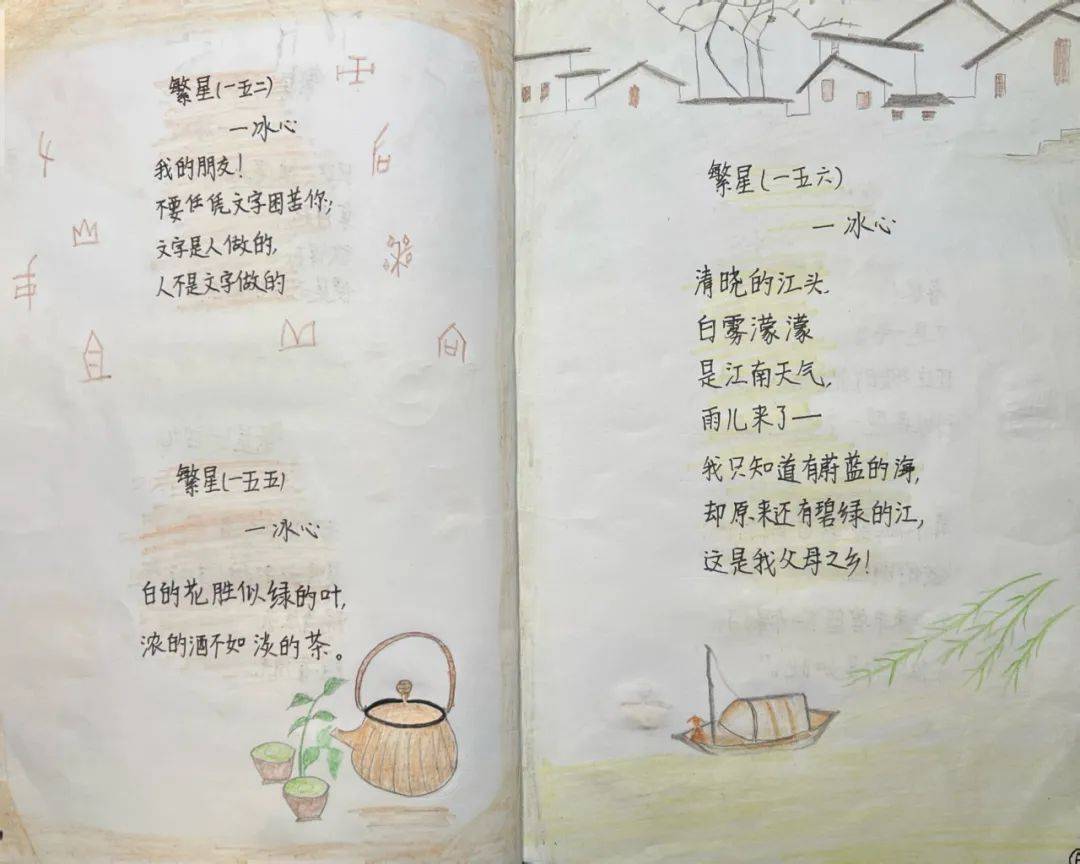 繁星(一五二)
—冰心
我的朋友!
不要任凭文字困苦你;
文字是人做的,
人不是文字做的
繁星(一五五)
—冰心
白的花胜似绿的叶,
浓的酒不如淡的茶。
繁星(一五六)
—冰心
清晓的江头,
白雾濛濛
是江南天气,
雨儿来了—
我只知道有蔚蓝的海,
却原来还有碧绿的江,
这是我父母之乡!